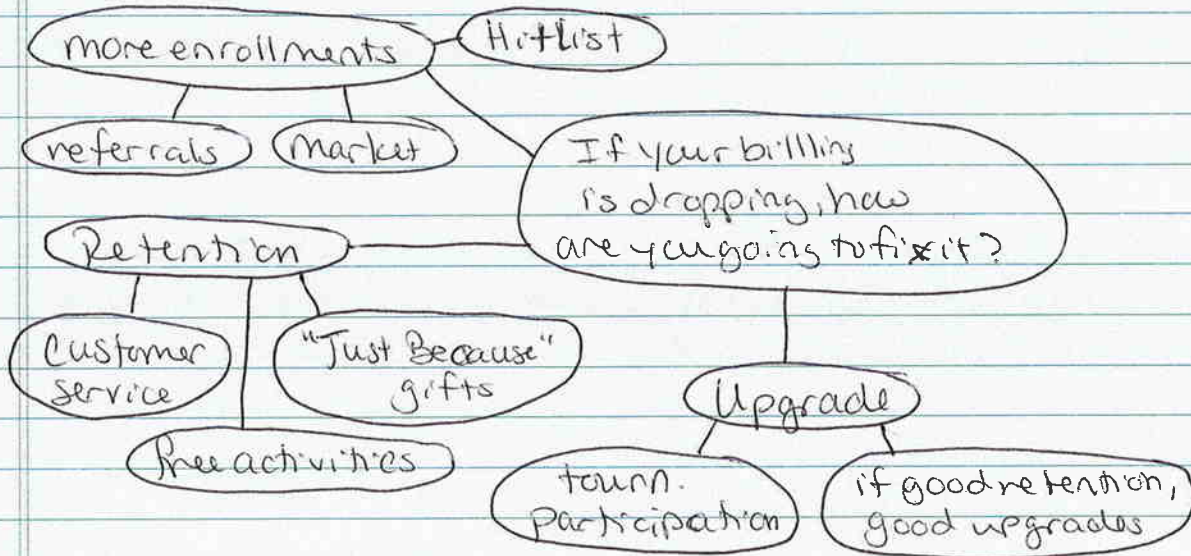 more enrollments
Hitlist
referrals
market
If your billling
is dropping, how
are you going to fix it?
Retention
Customer
service
"Just Because"
gifts
free activities
Upgrade
tourn.
participation
if good retention,
good upgrades